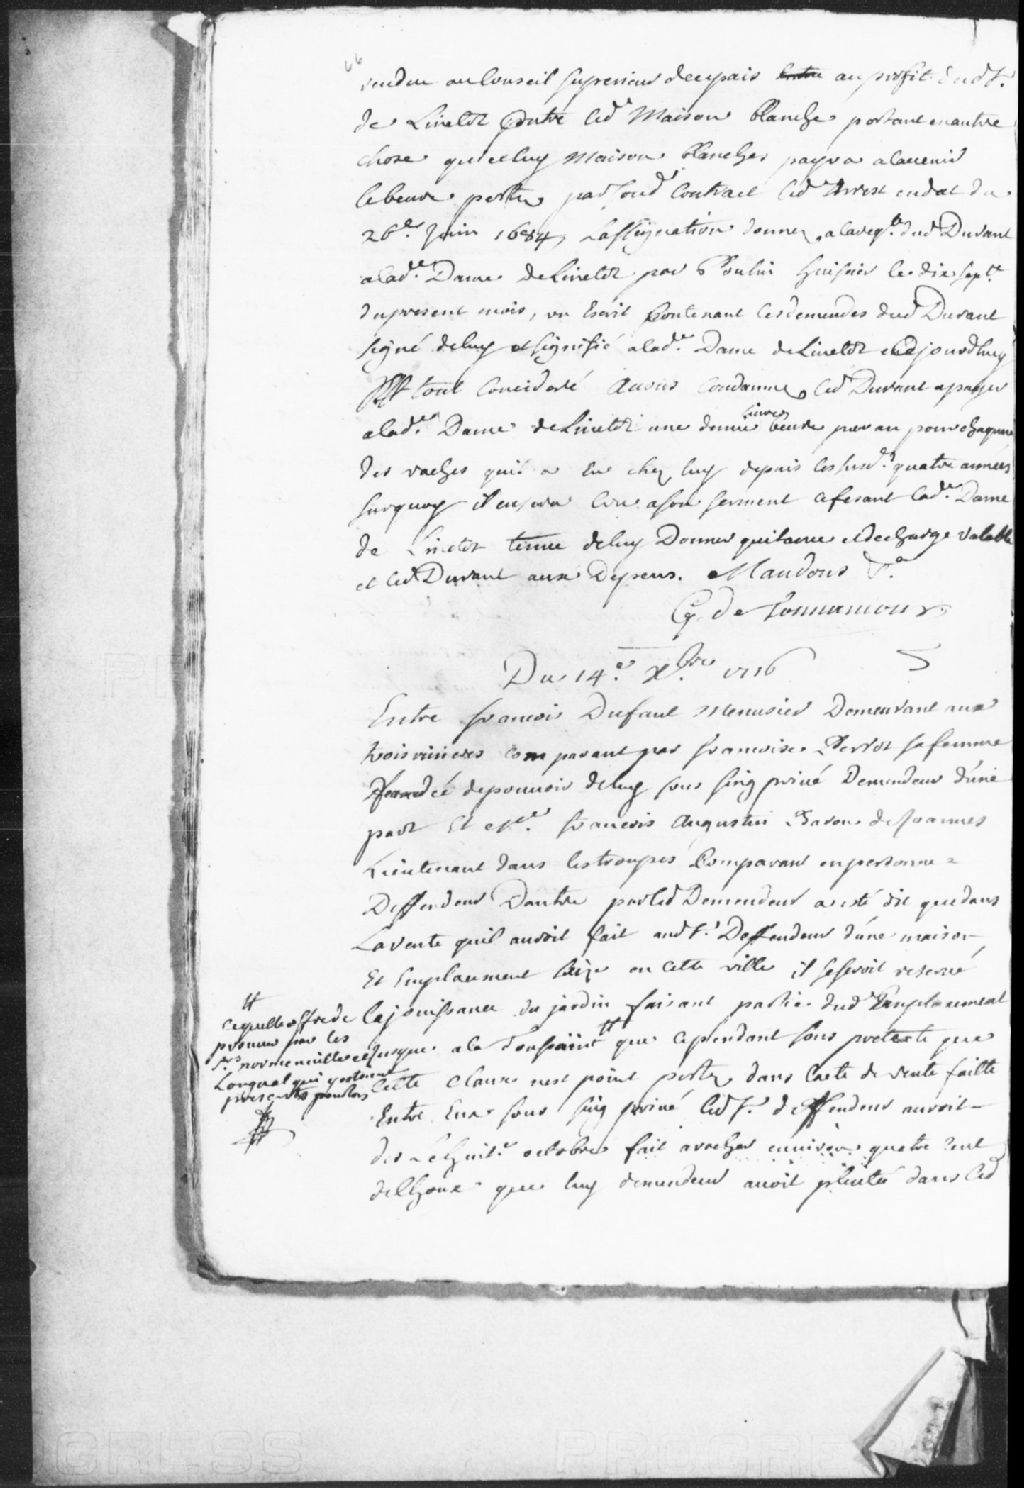 66
rendu au Conseil superieur de ce pais au profit dud Sr.
de Linctot Contre led Maison blanche portant entre autre
chose que celuy Maison blanche payera a lavenir
le beurre porté par sond Contract led arrest en dat du
26e. Juin 1684, Lassignation donnée a la reqte dud Durant
a lade. Dame de Linctot par Poulin huissier le dix septe.
du present mois, un Escrit Contenant les demandes dud Durant
signé de luy et signifié a lade. Dame de Linctot cejourdhuy
tout Considéré Avons Condamné led Durant a payer
a lade. Dame de Linctot une demie livres beure par an pour chaqune
des vaches quil a eu chez luy depuis lesd. quatre années
surquoy il en sera Cru a son serment ce fesant lade. Dame
de Linctot tenue de luy Donner quitance et decharge valable
et led Durant aux Depens. Mandons &a
G. de Tonnancour
Du 14e. Xbre 1716
Entre francois Dufaut Menusier Demeurant aux
trois rivieres Comparant par francoise Perrot sa femme
fondée de pouvoir de luy sous sing privé Demandeur d'une
part Et francois Augustin Baron de Joannes
Lieutenant dans les troupes Comparant en personne
Deffendeur Dautre par led Demandeur a esté dit que dans
La vente quil auroit fait aud Sr. Deffendeur d'une maison
Et Emplacement Size en cette ville il se seroit reservé
la jouissance du jardin faisant partie dud Emplacement
Jusque a la Toussaint que cependant sous pretexte que
cette clause nest point portée dans lacte de vente faitte
Entre Eux sous sing privé led Sr. deffendeur auroit
des le huite. octobre fait arracher environ quatre cent
de choux que luy demandeur avoit plantés dans led
ce quelle offre de
prouver par les
Srs normenville et
Longval qui y estoient
presents pour lors